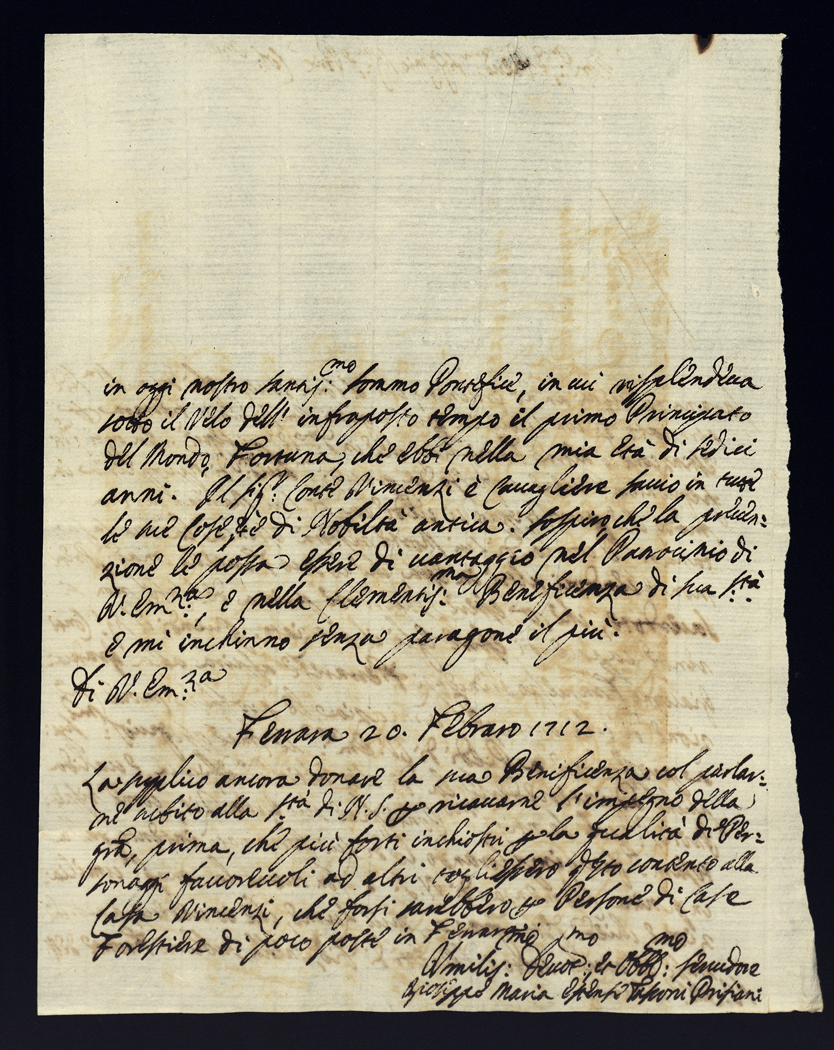 in oggi nostro santis:mo sommo Pontefice, in cui risplendeva
sotto il Velo dell' infraposto tempo il primo Principato
del Mondo, Fortuna, che ebbi nella mia età di sedici
anni. Il Sig.r Conte Vincenzi è Cavagliere savio in tutte
le sue Cose, et è di Nobiltà antica. Sospiro, che la preven:
zione le possa essere di vantaggio nel Patrocinio di
V. Em:za, e nella Clementis:ma Beneficenza di sua S:tà
e mi inchinno senza paragone il più.
Di V. Em:za
Ferrara 20. Febraro 1712.
La supplico ancora donare la sua Beneficenza col parlar:
ne subito alla S:tà di N. S. e ricavarne l'impegno della
gra, prima, che più forti inchiostri la qualità de Per:
sonaggi favorevoli ad altri togliessero questo contento alla
Casa Vincenzi, che forsi sarebbero Persone di Case
Forestiere di poco poste in Ferrara
Umilis:mo Devot:mo et Obbl:mo Servidore
Gioseppe Maria Estense Tassoni Prisiani